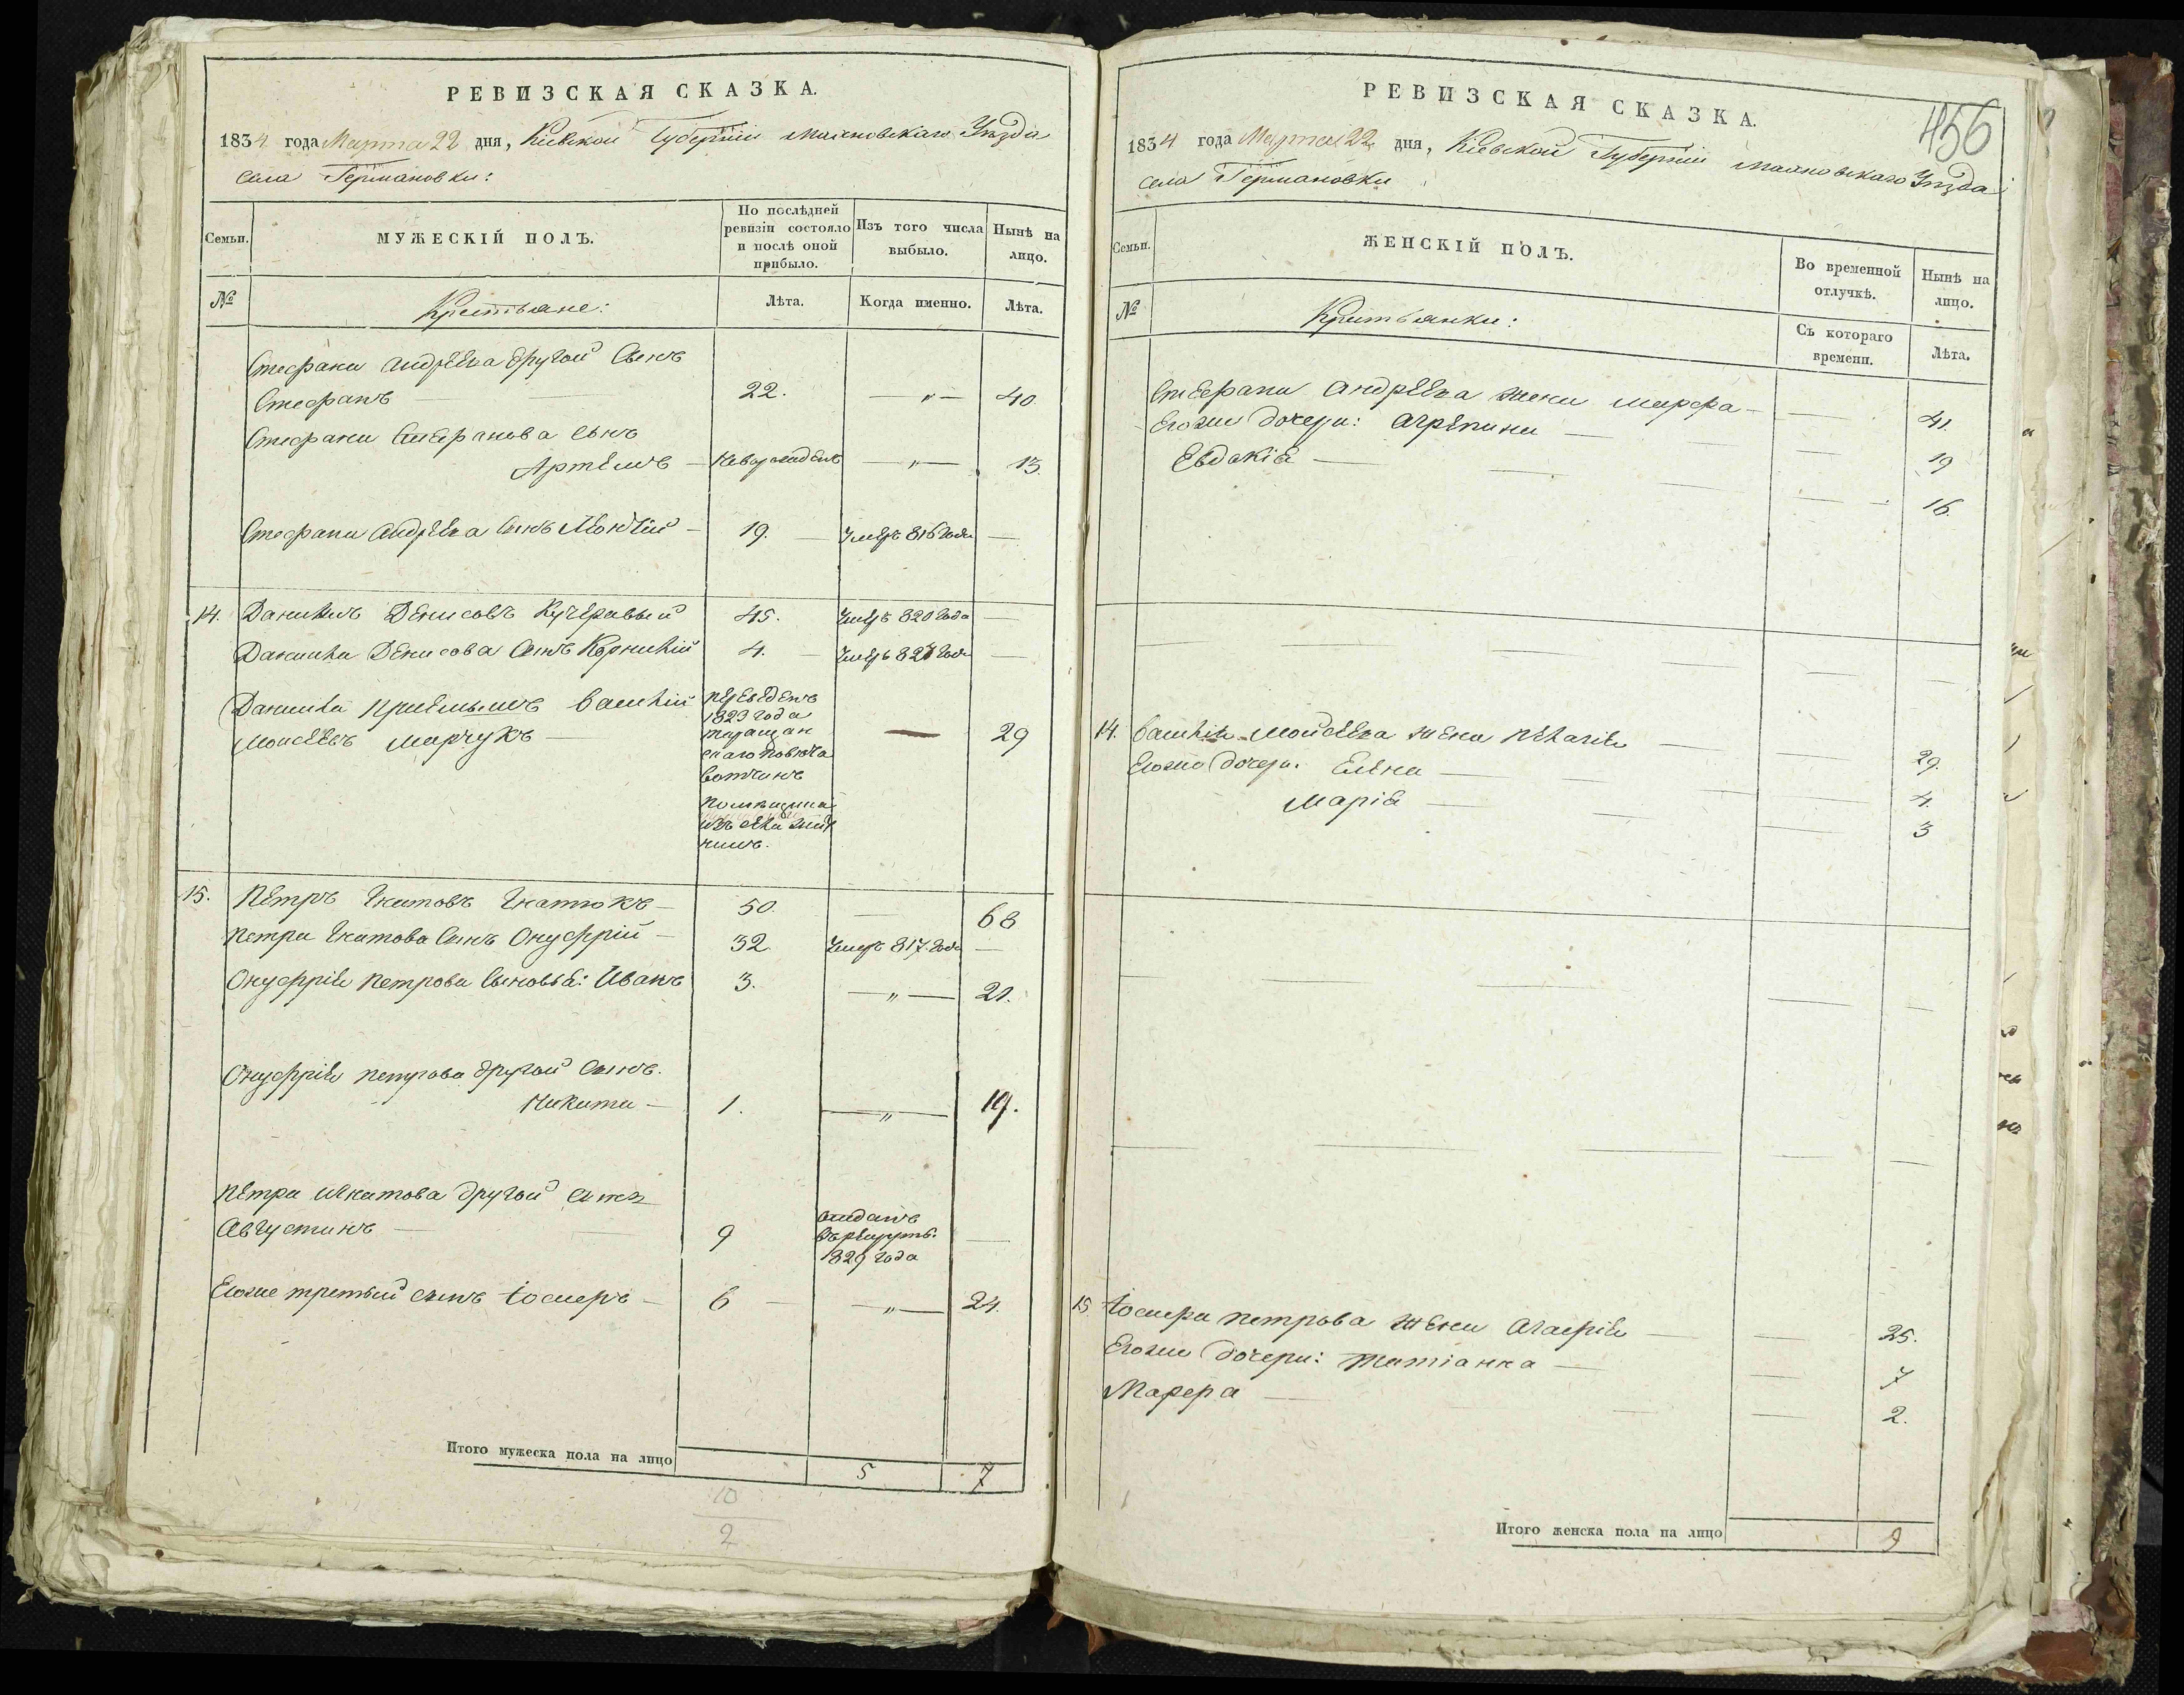 РЕВИЗСКАЯ СКАЗКА.
1834 года Марта 22 дня, Кіевской Губерніи Уѣзда
села Германовки:
Семьи.
МУЖЕСКІЙ ПОЛЪ.
По послѣдней
ревизіи состояло
и послѣ оной
прибыло.
Изъ того числа
выбыло.
Нынѣ на
лицо.
№
Крестьяне:
Лѣта.
Когда именно.
Лѣта.
Стефана Андреева другой Сынъ
Стефанъ 22. — „ — 40
Стефана Стефанова сынъ
Артемъ — новорожденъ — „ — 13.
Стефана Андреева Сынъ — 19. — Умеръ 816 года —
14. Данилъ Денисовъ Кучеравый 45. Умеръ 820 года —
Данила Денисова Сынъ Корнилій 4. — Умеръ 827 года —
Данила приемышъ Василій
Моисеевъ Марчукъ —
переведенъ
1823 года
таращан
скаго повѣта
вотчинъ
помѣщика
— 29
15. Петръ Игнатюкъ — 50. — 68
Петра Сынъ Онуфрій — 32. Умеръ 817. года —
Онуфрія Петрова Сыновья: Иванъ 3. — „ — 21.
Онуфрія петрова другой Сынъ.
Никита — 1. — „ — 19.
Петра другой сынъ
Августинъ — 9
отданъ
въ рекруты:
1829 года
—
Егоже третьий сынъ Іосифъ — 6 — — „ — 24.
Итого мужеска пола на лицо 5 7
10
2
РЕВИЗСКАЯ СКАЗКА.
456
1834 года Марта 22 дня, Кіевской Губерніи Уѣзда
села Германовки
Семьи.
ЖЕНСКІЙ ПОЛЪ.
Во временной
отлучкѣ.
Нынѣ на
лицо.
№
Крестьянки:
Съ котораго
времени.
Лѣта.
Стефана Андреева жена Марфа — — 41.
Егоже дочери: Агрепина — — 19
Евдокія — — 16.
14. Василія Мойсеева жена Пелагія — — 29.
Егоже дочери: Елена — — 4.
Марія — — 3
15 Іосифа Петрова жена Агафія — — 25.
Егоже дочери: Татіанна — — 7
Марфа — — 2.
Итого женска пола на лицо 9